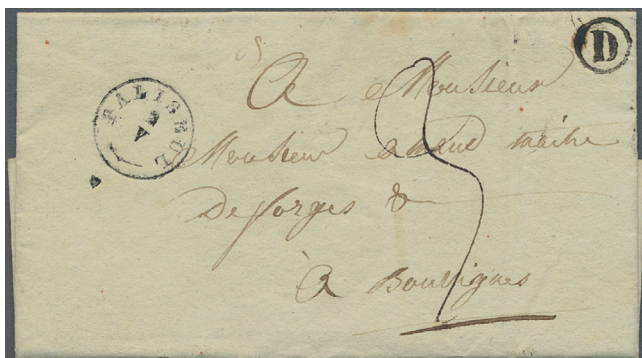 D
PALISEUL
A Monsieur
Monsieur maitre
De forges &
à Bouvignes
3